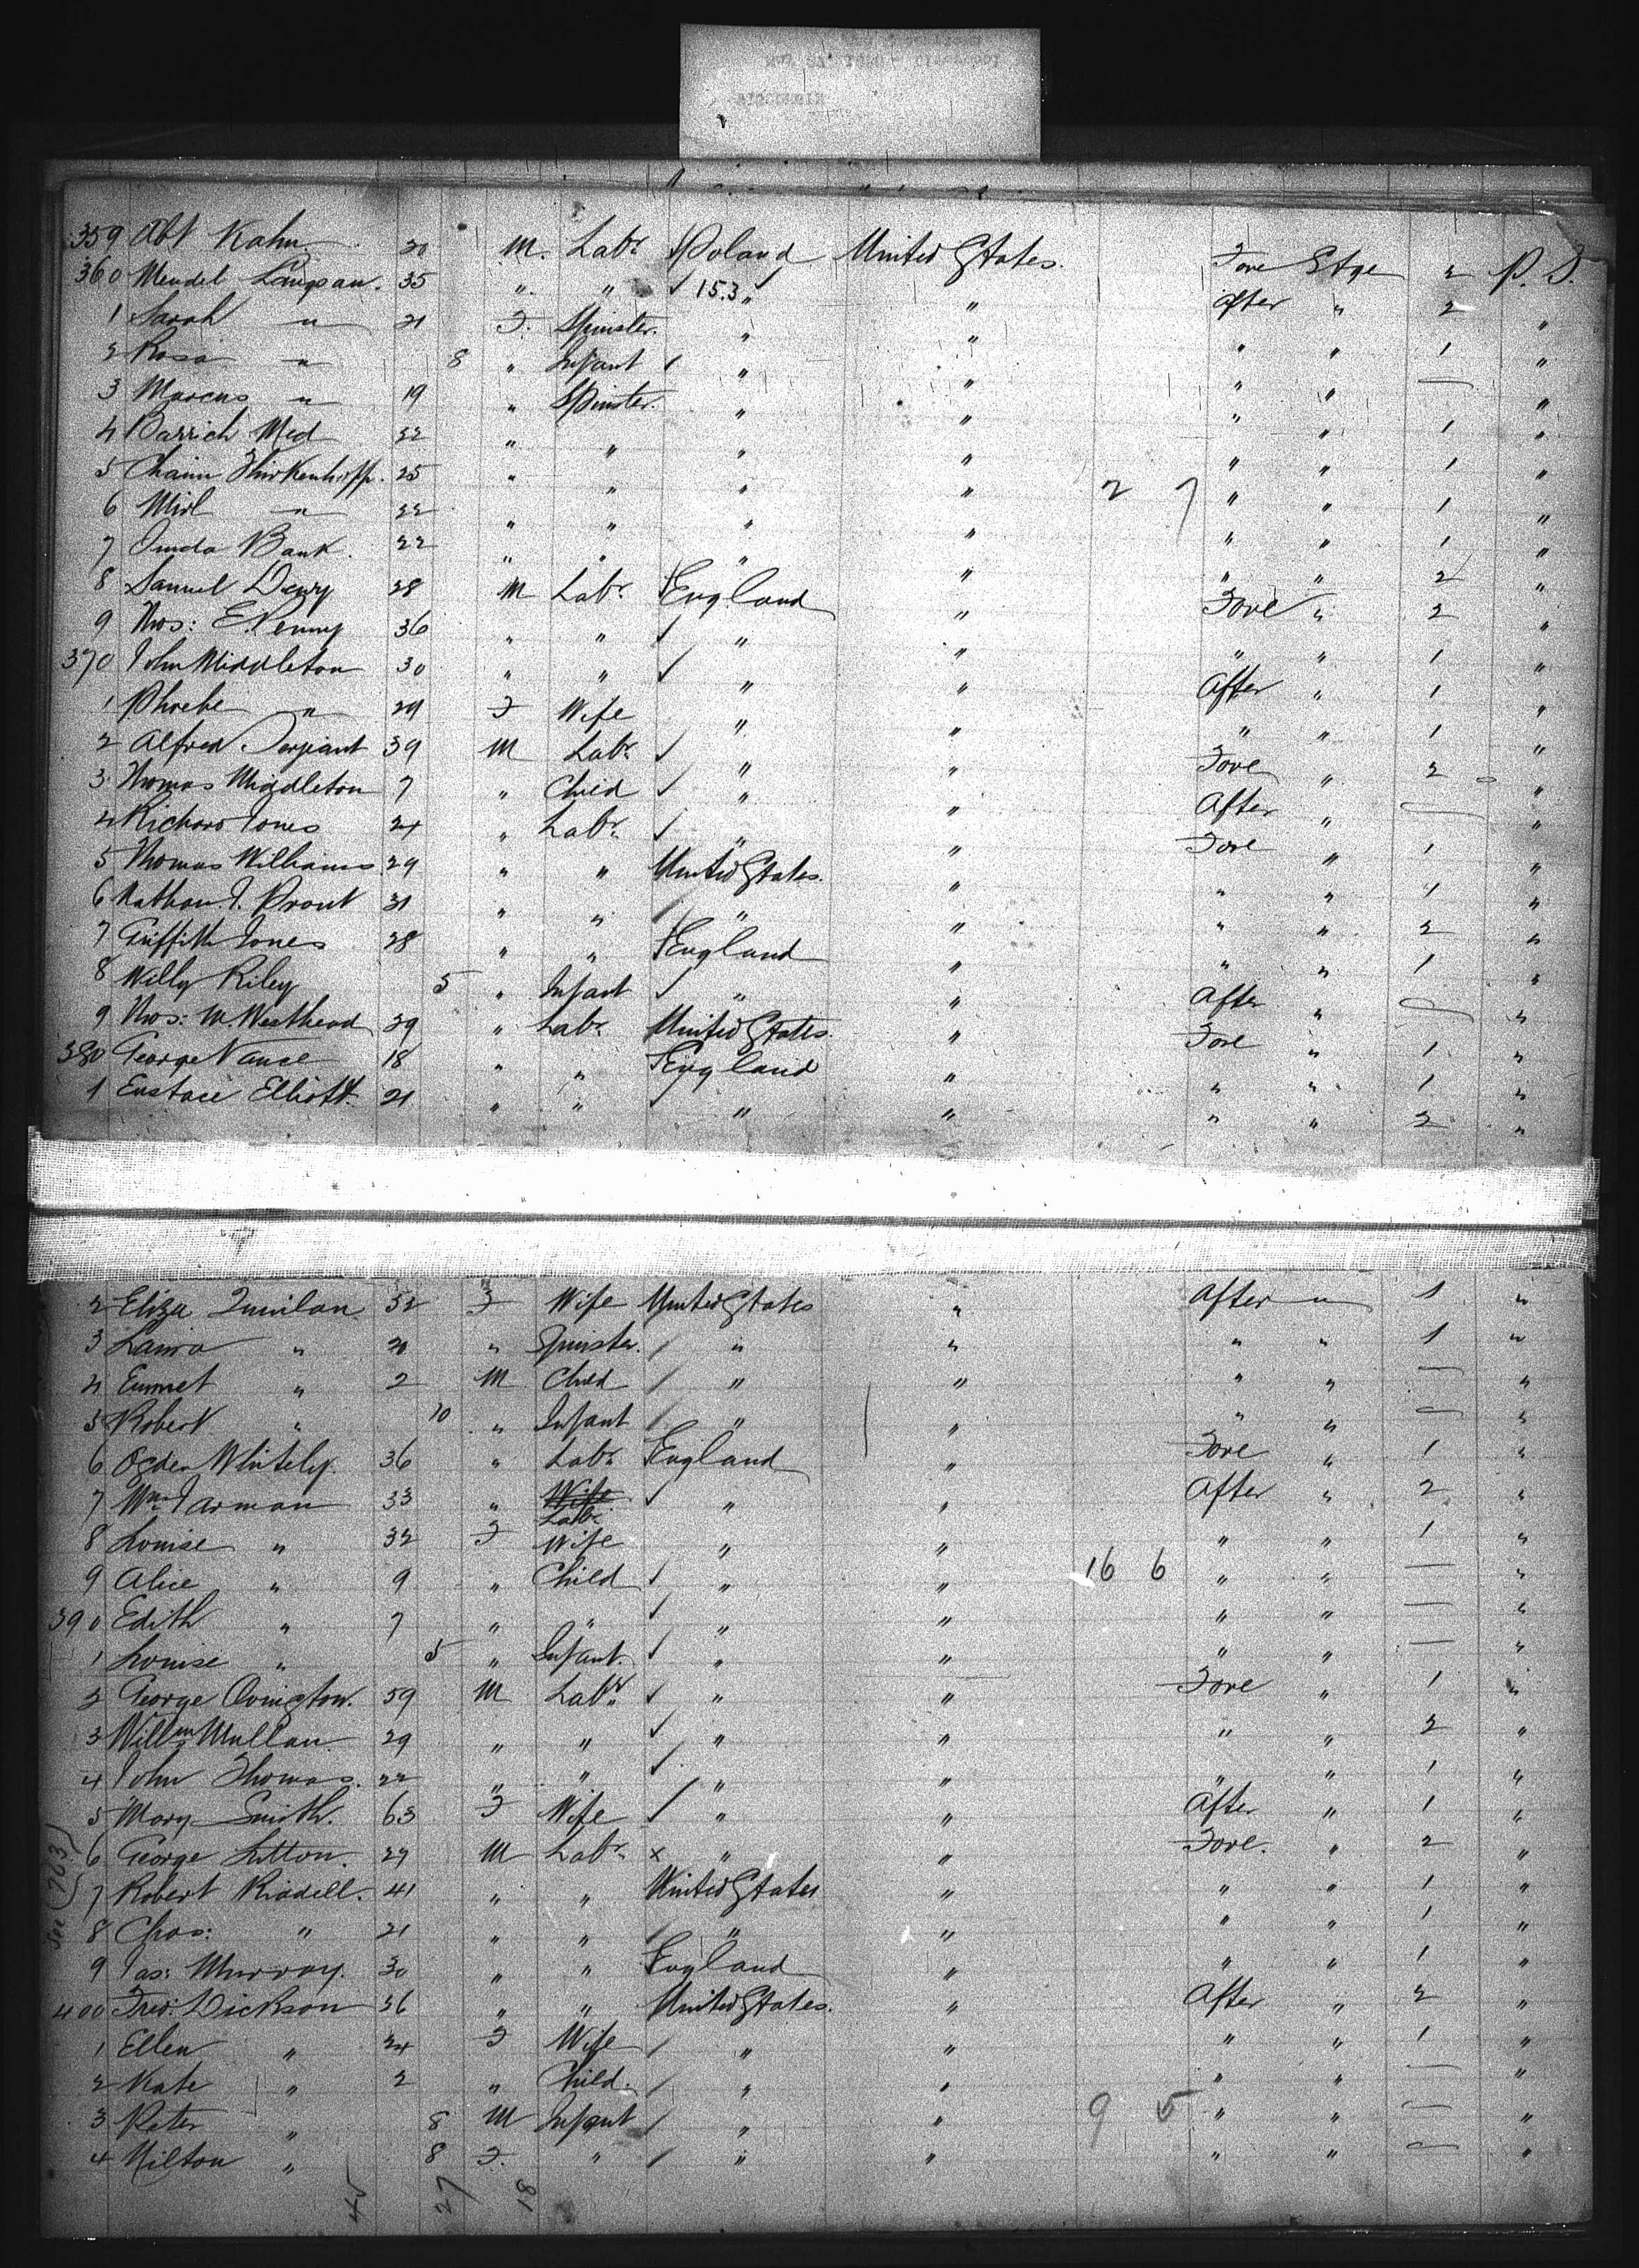 359 Abt Kahn 20 M. Labr Poland United States. Fore Stge 2 P. S.
360 Mendel 35 " " 153 " " After " 2 "
1 Sarah " 21 F. Spinster. " " " " 1 "
2 Rosa " 8 " Infant " " " " — "
3 Marcus " 19 " Spinster. " " " " 1 "
4 Med 22 " " " " " " 1 "
5 Chaim 25 " " " " " " 1 "
6 Mirl " 22 " " " " 2 7 " " 1 "
7 Bank. 22 " " " " " " 2 "
8 Samuel Dewy 28 M Labr England " Fore " 2 "
9 Thos: E. Penny 36 " " " " " " 1 "
370 John Middleton 30 " " " " After " 1 "
1 Phoebe " 29 F Wife " " " " 1 "
2 Alfred 39 M Labr " " Fore " 2 "
3 Thomas Middleton 7 " Child " " After " — "
4 Richard Jones 24 " Labr " " Fore " 1 "
5 Thomas Williams 29 " " United States. " " " 1 "
6 Nathan J. Prout 31 " " " " " " 2 "
7 Griffith Jones 28 " " England " " " 1 "
8 Willy Riley 5 " Infant " " After " — "
9 Thos: W. Westhead 39 " Labr United States. " Fore " 1 "
380 George Vance 18 " " England " " " 1 "
1 Eustace Elliott. 21 " " " " " " 2 "
2 Eliza Quinlan 32 F Wife United States " After " 1 "
3 Laura " 20 " Spinster. " " " " 1 "
4 Emmet " 2 M Child " " " " — "
5 Robert " 10 " Infant " " " " — "
6 Ogden Whitely. 36 " Labr England " Fore " 1 "
7 Wm Jarman 33 " Wife Labr " " After " 2 "
8 Louise " 32 F Wife " " " " 1 "
9 Alice " 9 " Child " " 16 6 " " — "
390 Edith " 7 " " " " " " — "
1 Louise " 5 " Infant. " " " " — "
2 George Ovington. 59 M Labr " " Fore " 1 "
3 Willm Mullan 29 " " " " " " 2 "
4 John Thomas. 22 " " " " " " 1 "
5 Mary Smith. 63 F Wife " " After " 1 "
6 George Litton. 27 M Labr x " " Fore. " 2 "
7 Robert Riddell. 41 " " United States " " " 1 "
8 Chas: " 21 " " " " " " 1 "
9 Jas: Murray. 30 " " England " " " 1 "
400 Fred: Dickson 26 " " United States. " After " 2 "
1 Ellen " 24 F Wife " " " " 1 "
2 Kate " 2 " Child. " " " " — "
3 Peter " 8 M Infant " " 9 5 " " — "
4 Milton " 8 F. " " " " " — "
See (763)
45 27 18